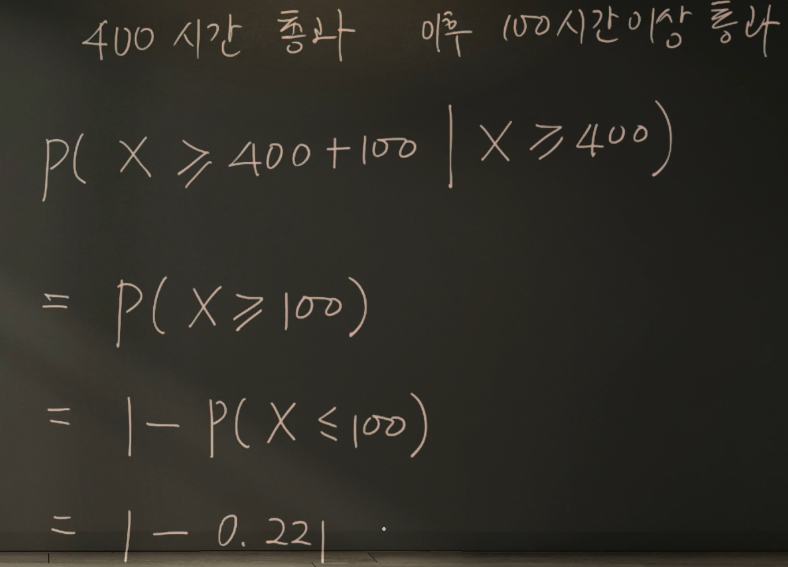 400 시간 통과 이후 100시간이상 통과
P( X ≥ 400+100 | X ≥ 400)
= P( X ≥ 100)
= 1 - P( X ≤ 100)
= 1 - 0.221